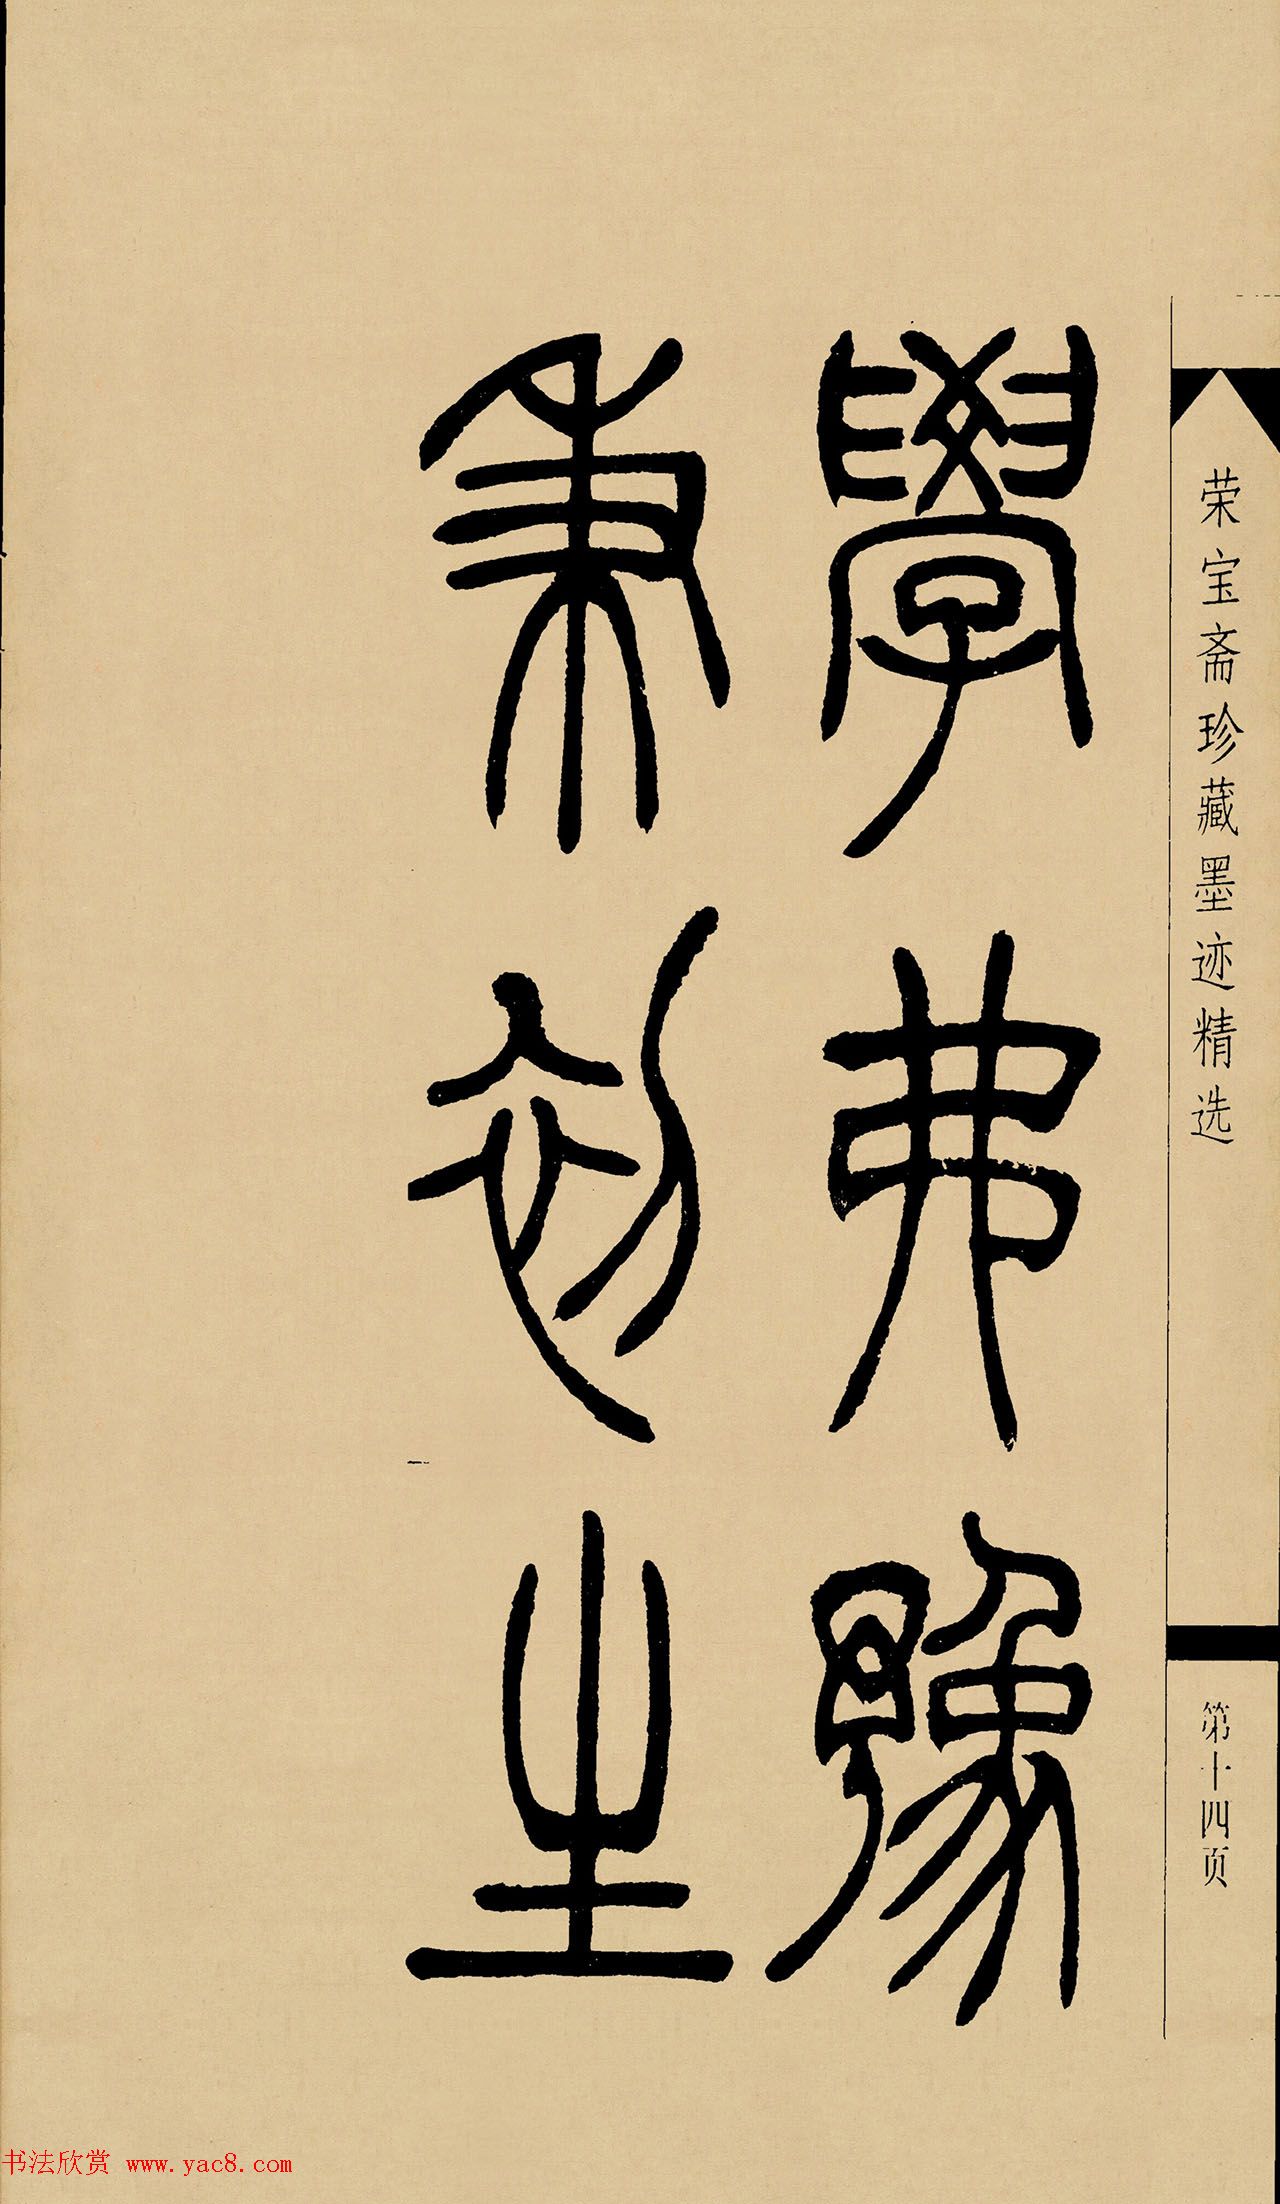 荣宝斋珍藏墨迹精选
第十四页
學弗豫
秉初生
书法欣赏 www.yac8.com